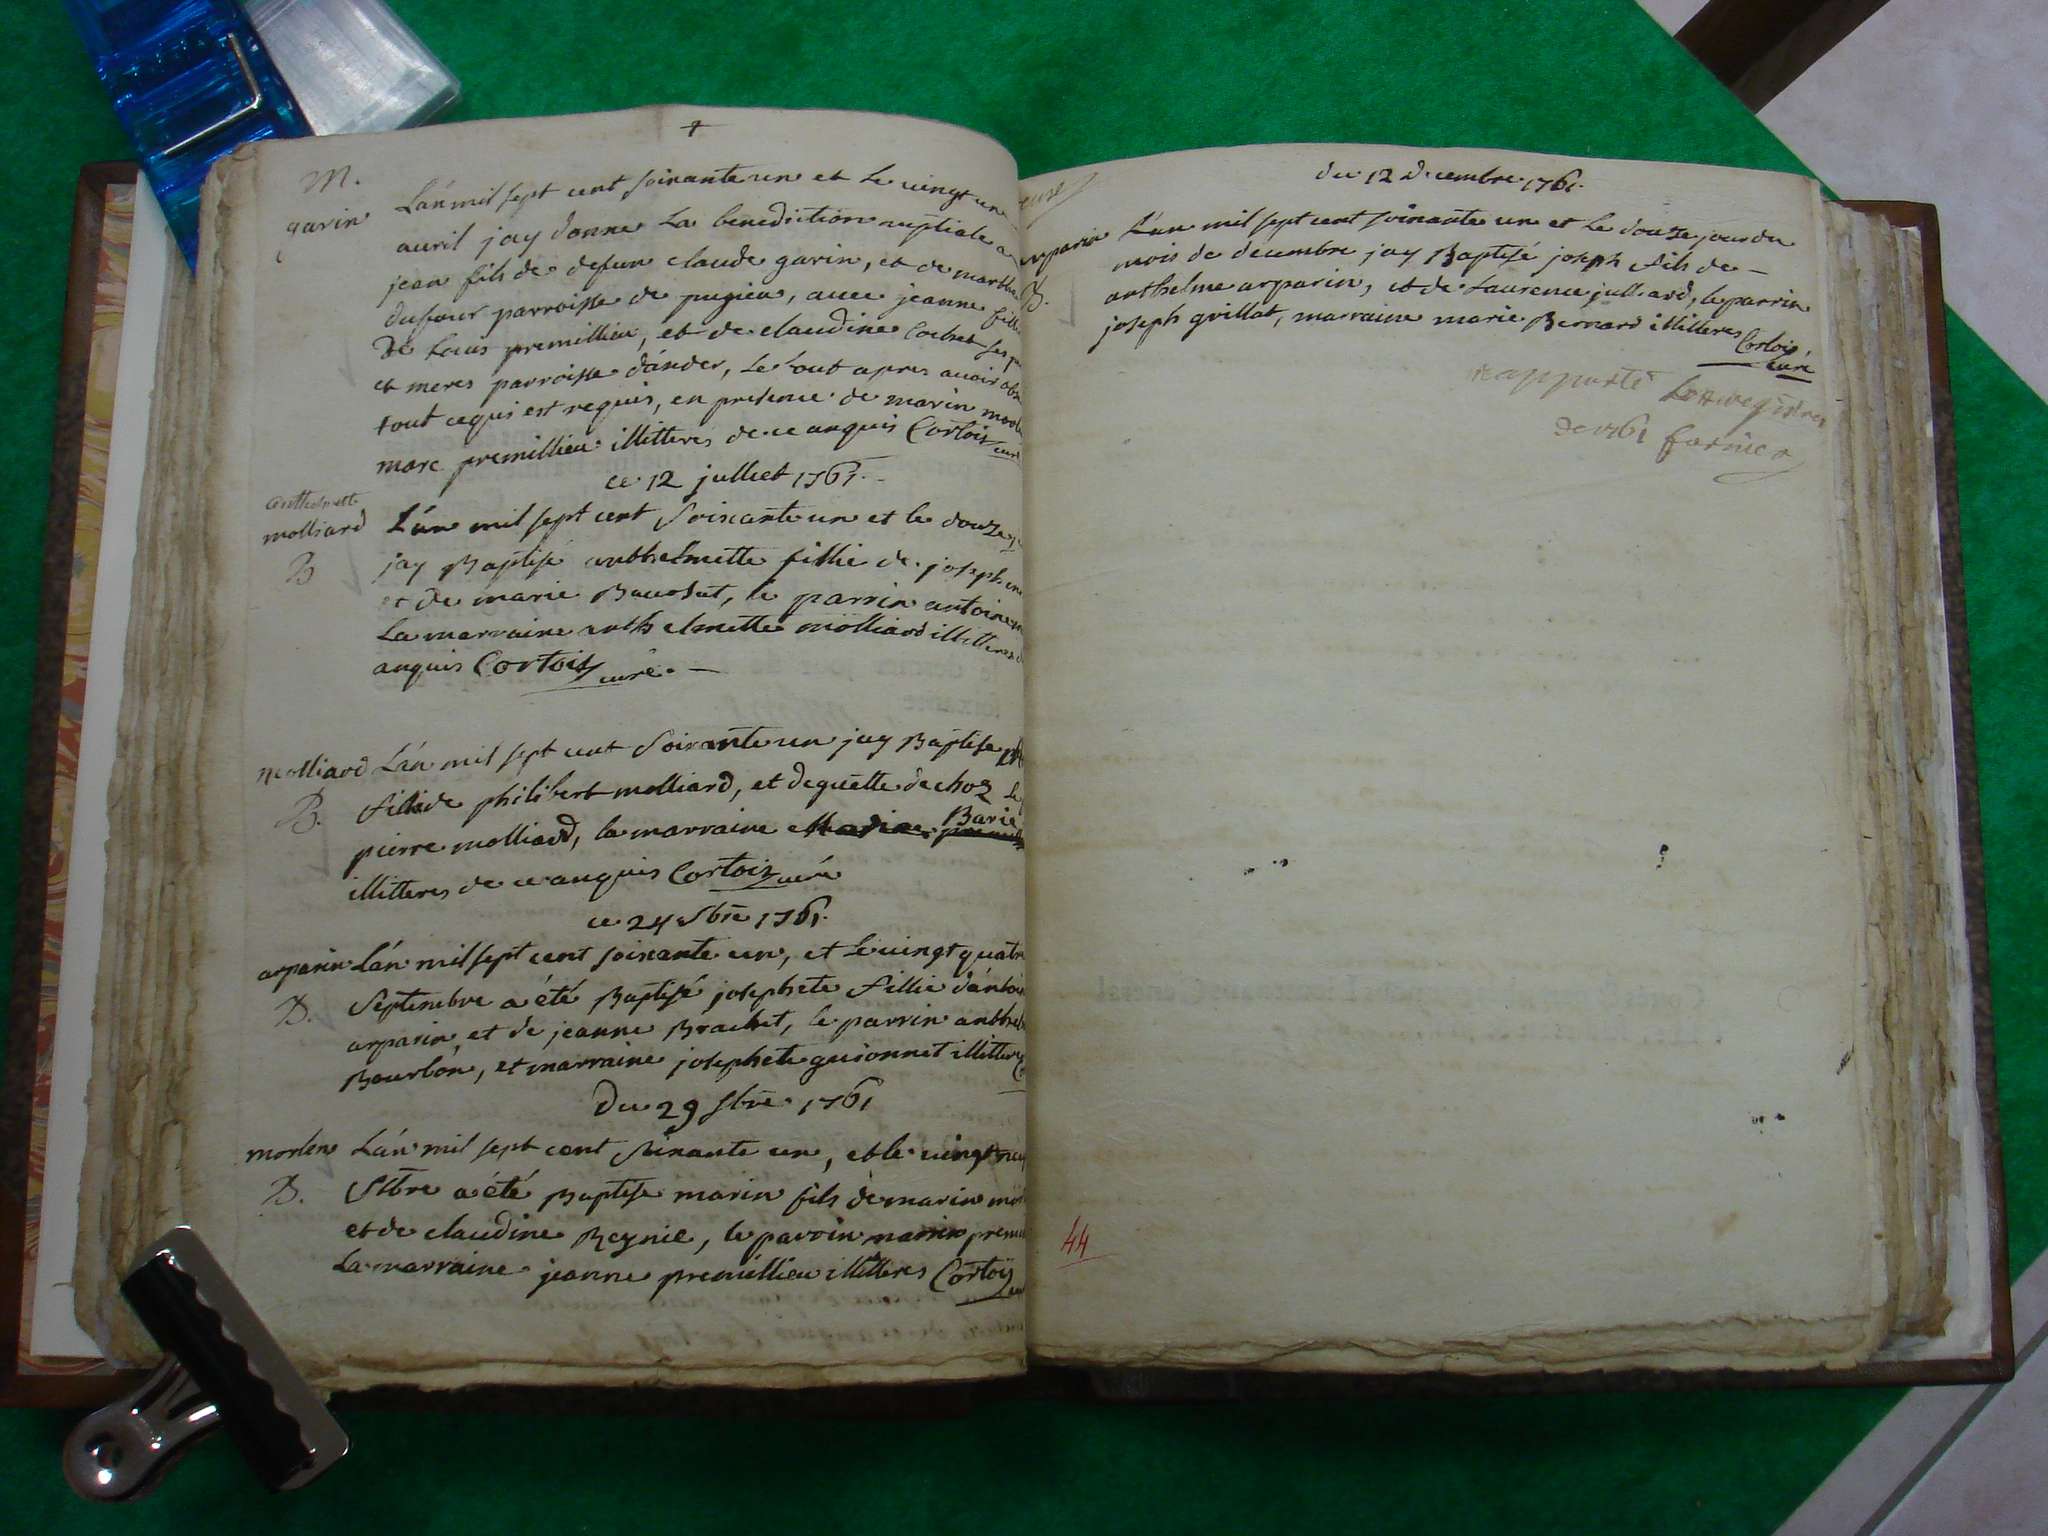 M.
garin
L'an mil sept cent soixante un et le vingt un
auril jay donne La benediction nuptiale a
jean fils de defun claude garin, et de marthe
dufour parroisse de pugieu, auec jeanne fille
De Louis premillieu, et de claudine Cochet ses p
et meres parroisse d'ander, Le tout apres auoir obs
tout cequi est requis, en presence de marin
marc premillieu illitteres de ce anquis Cortois curé
ce 12 julliet 1761.
anthelmette
molliard
B
L'an mil sept cent Soixante un et le douze
jay Baptisé anthelmette fillie de joseph
et de marie, le parrin antoine
La marraine anthelmette molliard illitteres
anquis Cortois curé.
molliard
B.
L'an mil sept cent Soixante un jay Baptise
fillie de philibert molliard, et de dechoz Le
pierre molliard, la marraine Barie
illitteres de ce anquis Cortois curé
ce 24 7bre 1761.
arparin
B.
L'an mil sept cent soixante un, et le vingt quatre
Septembre a été Baptisé josephete fillie d'antoi
arparin, et de jeanne Brachet, le parrin anthel
Bourbon, et marraine josephete guionnet illittere
Du 29 7bre 1761
morlen
B.
L'an mil sept cent soixante un, et le vingt neu
7bre a été Baptise marin fils de marin mor
et de claudine Reynie, le parrin marin premi
La marraine jeanne premillieu illitteres Cortois
du 12 decembre 1761.
arparin
B.
L'an mil sept cent soixante un et le douze jour du
mois de decembre jay Baptisé joseph fils de
anthelme arparin, et de Laurence julliard, le parrin
joseph guillat, marraine marie Bernard illitteres
Cortois
curé
rapporté registres
de 1761
44